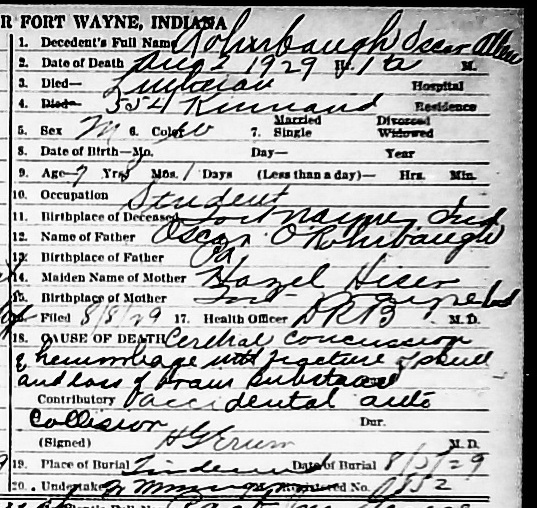 R FORT WAYNE, INDIANA
1. Decedent's Full Name Rohrbaugh Oscar Allen
2. Date of Death Aug 2 1929 Hr. 1 a M.
3. Died— Lutheran Hospital
4. Died— 554 Kinnaird Residence
Married Divorced
5. Sex M 6. Color W 7. Single Widowed
8. Date of Birth—Mo. Day— Year
9. Age— 7 Yrs. Mos. 1 Days (Less than a day)— Hrs. Min.
10. Occupation Student
11. Birthplace of Deceased Fort Wayne Ind
12. Name of Father Oscar O Rohrbaugh
13. Birthplace of Father Pa
14. Maiden Name of Mother Hazel Hiser
15. Birthplace of Mother Fort Wayne Ind
16. Filed 8/8/29 17. Health Officer DRB M. D.
18. CAUSE OF DEATH Cerebral concussion
& hemorrhage with fracture of skull
and loss of brain substance
Contributory accidental auto
Collision Dur.
(Signed) M. D.
19. Place of Burial Lindenwood Date of Burial 8/5/29
20. Undertaker Registered No. 852